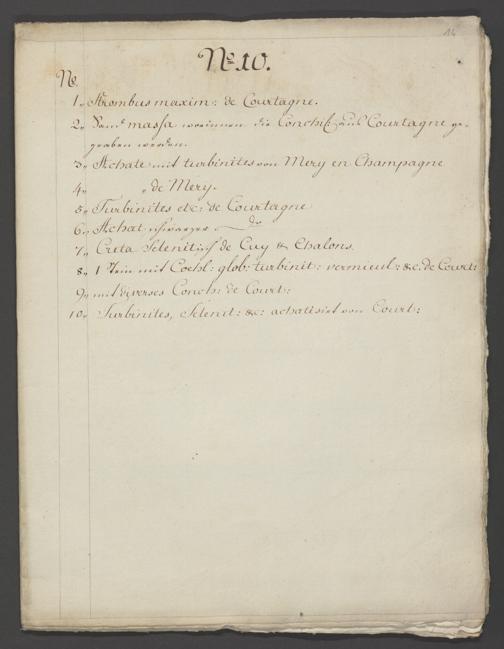 14
No. 10.
No.
1. Strombus maxim: de Courtagne.
2. Sand massa worinnen die Conchil: aus Courtagne ge-
graben werden.
3. Achate mit turbinites von Mery en Champagne
4. " de Mery.
5. Turbinites etc: de Courtagne
6. Achat schwarzer do
7. Creta Selenitisch de Cuy & Chalons.
8. 1 mit Cochl: glob: turbinit: vermicul: &c. de Court:
9. mit diverses Conch: de Court:
10. Turbinites, Selenit: &c: achatisirt von Court: